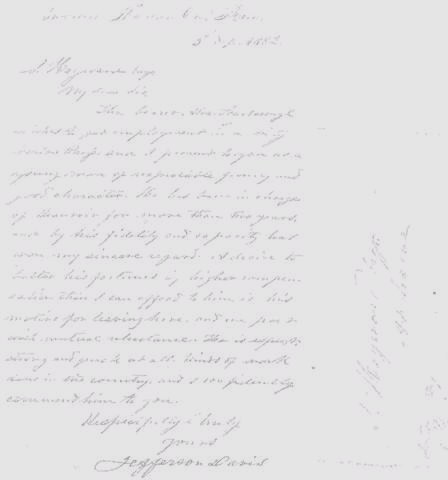 1882.
My dear Sir
The bearer, Mr.
to get employment in a city
and I present to you as a
young man of respectable family and
good character. He has been in charge
of Beauvoir for more than two years,
and by his fidelity and capacity has
won my sincere regard. A desire to
better his fortunes by higher compen
sation than I can afford to him is his
motive for leaving here, and we part
with mutual reluctance. He is
strong and at all kinds of work
done in the country, and I confidently
commend him to you.
Respectfully & truly
yours
Jefferson Davis